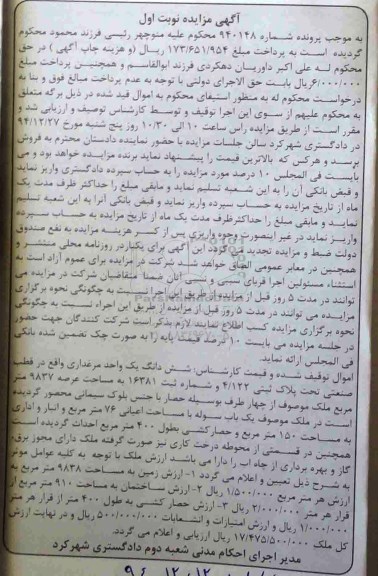 آگهی مزایده نوبت اول
به موجب پرونده شماره ۹۴۰۱۴۸ محکوم علیه منوچهر رئیسی فرزند محمود محکوم
گردیده است به پرداخت مبلغ ۱۷۳/۶۵۱/۹۵۴ ریال (و هزینه چاپ آگهی) در حق
محکوم له علی اکبر داوریان دهکردی فرزند ابوالقاسم و همچنین پرداخت مبلغ
۶/۰۰۰/۰۰۰ ریال بابت حق الاجرای دولتی با توجه به عدم پرداخت مبالغ فوق و بنا به
درخواست محکوم له به منظور استیفای محکوم به اموال قید شده در ذیل برگه متعلق
به محکوم علیهم از سوی این اجرا توقیف و توسط کارشناس توصیف و ارزیابی شد و
مقرر است از طریق مزایده راس ساعت ۱۰ الی ۱۰/۳۰ روز پنج شنبه مورخ ۹۴/۱۲/۲۷
در دادگستری شهرکرد سالن جلسات مزایده با حضور نماینده دادستان محترم به فروش
برسد و هرکس که بالاترین قیمت را پیشنهاد نماید برنده مزایده خواهد بود و می
بایست فی المجلس ۱۰ درصد مورد مزایده را به حساب سپرده دادگستری واریز نماید
و قبض بانکی آن را به این شعبه تسلیم نماید و مابقی مبلغ را حداکثر ظرف مدت یک
ماه از تاریخ مزایده به حساب سپرده واریز نماید و قبض بانکی آنرا به این شعبه تسلیم
نماید و مابقی مبلغ را حداکثر ظرف مدت یک ماه از تاریخ مزایده به حساب سپرده
واریز نماید در غیر اینصورت وجوه واریزی پس از کسر هزینه مزایده به نفع صندوق
دولت ضبط و مزایده تجدید می گردد این آگهی برای یکبار در روزنامه محلی منتشر و
همچنین در معابر عمومی الصاق خواهد شد شرکت در مزایده برای عموم آزاد است به
استثناء مسئولین اجرا اقربای سببی و نسبی آنان ضمنا متقاضیان شرکت در مزایده می
توانند در مدت ۵ روز قبل از مزایده از طریق این اجرا نسبت به چگونگی نحوه برگزاری
مزایده می توانند در مدت ۵ روز قبل از مزایده از طریق این اجراء نسبت به چگونگی
نحوه برگزاری مزایده کسب اطلاع نمایند لازم بذکر است شرکت کنندگان جهت حضور
در جلسه مزایده می بایست ۱۰ درصد قیمت پایه را به صورت چک تضمین شده بانکی
فی المجلس ارائه نماید.
اموال توقیف شده و قیمت کارشناس: شش دانگ یک واحد مرغداری واقع در قطب
صنعتی تحت پلاک ثبتی ۴/۱۲۲ و شماره ثبت ۱۶۳۸۱ به مساحت عرصه ۹۸۳۷ متر
مربع ملک موصوف از چهار طرف بوسیله حصار با جنس بلوک سیمانی محصور گردیده
است در ملک موصوف یک باب سوله با مساحت اعیانی ۷۶ متر مربع و انبار و اداری
به مساحت ۱۵۰ متر مربع و حصارکشی بطول ۴۰۰ متر مربع احداث گردیده است
همچنین در قسمتی از محوطه درخت کاری نیز صورت گرفته ملک دارای مجوز برق،
گاز و بهره برداری از چاه اب را دارا می باشد ارزش ملک با توجه به کلیه عوامل موثر
به شرح ذیل تعیین و اعلام می گردد ۱- ارزش زمین به مساحت ۹۸۳۸ متر مربع به
ارزش هر متر مربع ۱/۵۰۰/۰۰۰ ریال ۲- ارزش ساختمان به مساحت ۹۱۰ متر مربع از
قرار هر متر ۲/۰۰۰/۰۰۰ ریال ۳- ارزش حصار کشی به طول ۴۰۰ متر از قرار هر متر
۱/۰۰۰/۰۰۰ ریال و ارزش امتیازات و انشعابات ۵۰۰/۰۰۰/۰۰۰ ریال و در نهایت ارزش
کل ملک ۱۷/۴۷۵/۵۰۰/۰۰۰ ریال ارزیابی و اعلام می گردد.
مدیر اجرای احکام مدنی شعبه دوم دادگستری شهرکرد